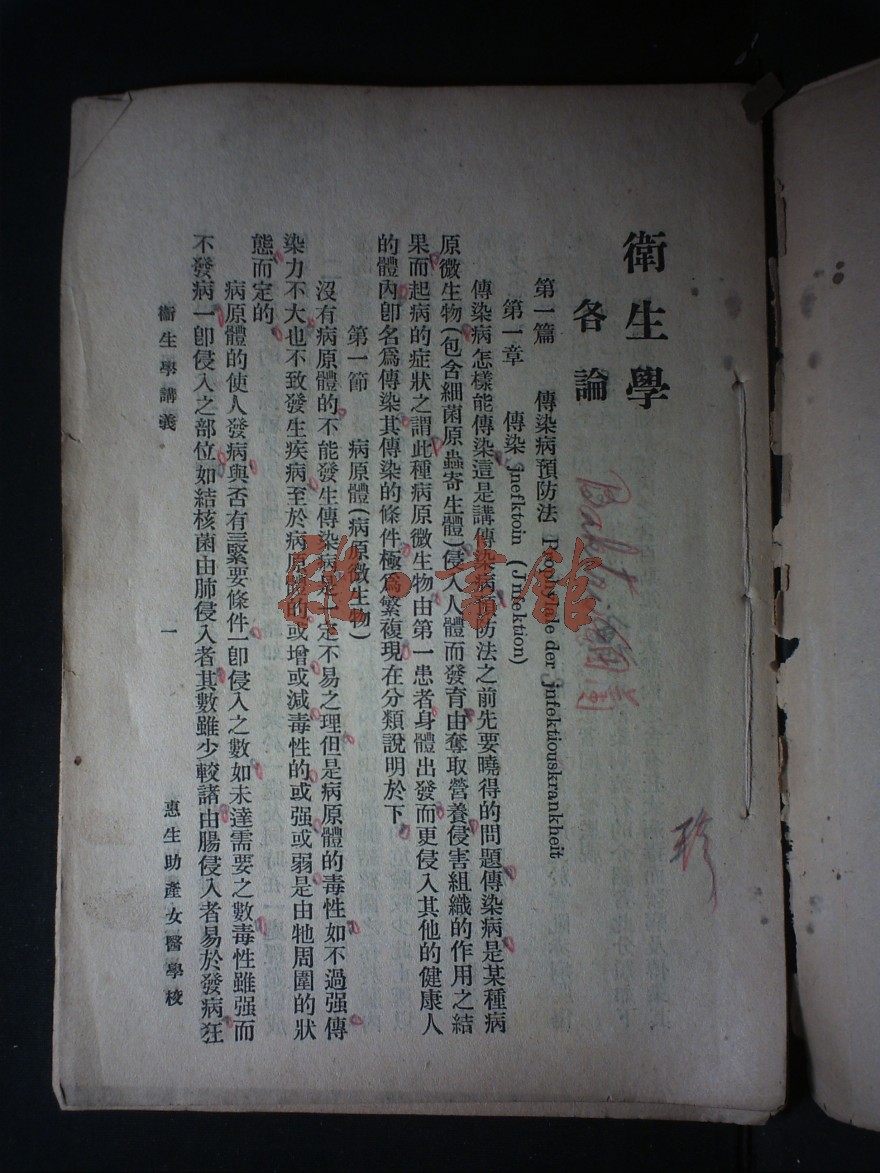 衛生學
各論
第一篇 傳染病預防法 Prophylade der jnfektiouskrankheit
第一章 傳染 jnefktoin (Jnfektion)
傳染病怎樣能傳染這是講傳染病預防法之前先要曉得的問題傳染病是某種病
原微生物(包含細菌原蟲寄生體)侵入人體而發育由奪取營養侵害組織的作用之結
果而起病的症狀之謂此種病原微生物由第一患者身體出發而更侵入其他的健康人
的體內卽名爲傳染其傳染的條件極爲繁複現在分類說明於下
第一節 病原體(病原微生物)
沒有病原體的不能發生傳染病是一定不易之理但是病原體的毒性如不過强傳
染力不大也不致發生疾病至於病原體的或增或減毒性的或强或弱是由牠周圍的狀
態而定的
病原體的使人發病與否有三緊要條件一卽侵入之數如未達需要之數毒性雖强而
不發病一卽侵入之部位如結核菌由肺侵入者其數雖少較諸由腸侵入者易於發病狂
衞生學講義 一 惠生助產女醫學校
細菌
珍